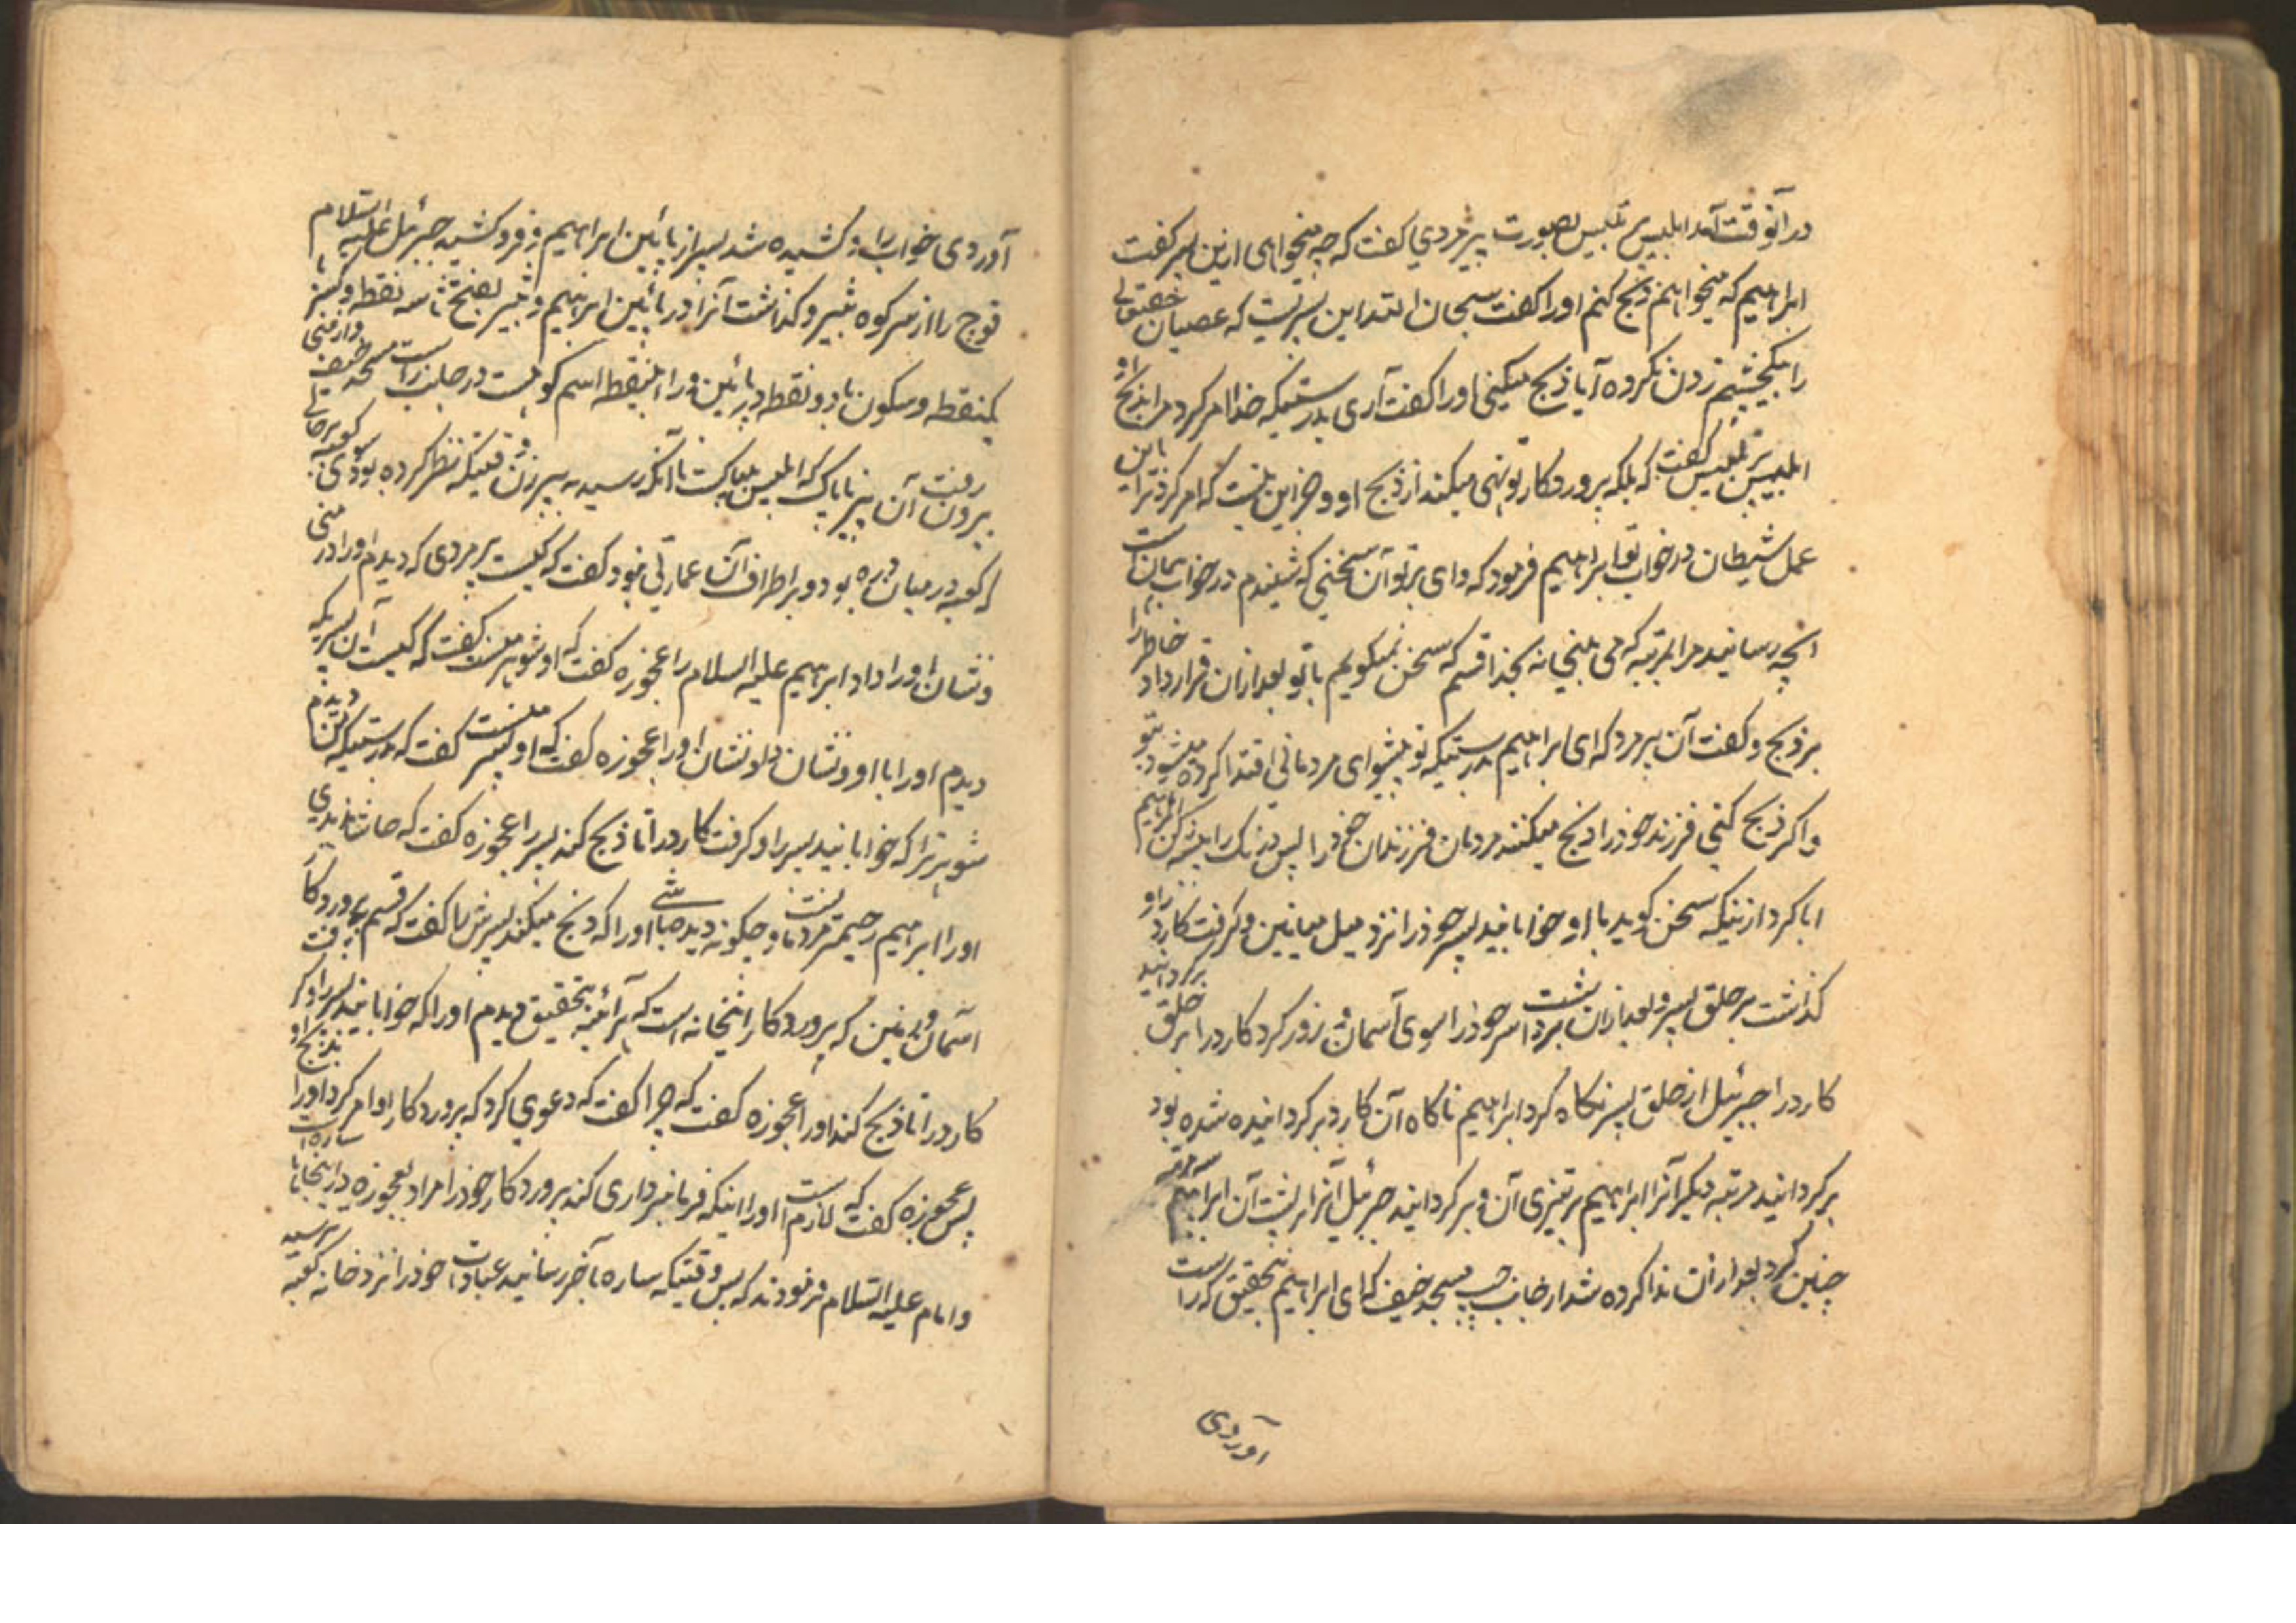 در آنوقت آمد ابلیس پر تلبیس بصورت پیر مردی گفت که چه میخواهی ازین پسر گفت
ابراهیم که میخواهم ذبح کنم او را گفت سبحان الله این پسریست که عصیان حقتعالی
را بیکچشم زدن نکرده آیا ذبح میکنی او را گفت آری بدرستیکه خدا امر کرد مرا بذبح او
ابلیس پر تلبیس گفت که بلکه پروردگار تو نهی میکند از ذبح او و جز این نیست که امر کرد ترا باین
عمل شیطان در خواب تو ابراهیم فرمود که وای بر تو آن سخنی که شنیدم در خواب همان است
آنچه رسانید مرا بمرتبه که می بینی نه بخدا قسم که سخن نمیگویم با تو بعد ازان قرار داد خاطر را
بر ذبح و گفت آن پیر مرد که ای ابراهیم بدرستیکه تو پیشوای مردمانی اقتدا کرده میشود بتو
و اگر ذبح کنی فرزند خود را ذبح میکنند مردمان فرزندان خود را پس درنگ را پیشه کن ابراهیم
ابا کرد ازینکه سخن گوید با او خوابانید پسر خود را نزد میل میانین و گرفت کارد را و
گذاشت بر حلق پسر و بعد ازان برداشت سر خود را بسوی آسمان و زور کرد کارد را بر حلق برگردانید
کارد را جبرئیل از حلق پسر نگاه کرد ابراهیم ناگاه آن کارد برگردانیده شده بود
برگردانید مرتبه دیگر آنرا ابراهیم بر تیزی آن و برگردانید جبرئیل آنرا بر پشت آن ابراهیم سه مرتبه
چنین کرد بعد ازان ندا کرده شد از جانب چپ مسجد خیف که ای ابراهیم بتحقیق که راست
آوردی
آوردی خواب را و کشیده شد پسر از پائین ابراهیم و فرو کشید جبرئیل علیه السلام
قوچ را از سر کوه ثبیر و گذاشت آنرا در پائین ابراهیم و ثبیر بفتح ثا سه نقطه و کسر با
یکنقطه و سکون یا دو نقطه در پائین و را بینقطه اسم کوهیست در جانب راست مسجد خیف و از منی
بیرون رفت آن پیر ناپاک که ابلیس بیباکست تا آنکه رسید به پیر زن وقتیکه نظر کرده بود بسوی کعبه در حالی
که کعبه در میان دره بود و بر اطراف آن عمارتی نبود گفت که کیست پیر مردی که دیدم او را در منی
و نشان او را داد ابراهیم علیه السلام را عجوزه گفت که او شوهر منست گفت که کیست آن پسریکه
دیدم او را با او و نشان داد نشان او را عجوزه گفت که او پسر منست گفت که بدرستیکه من دیدم
شوهر ترا که خوابانید پسر را و گرفت کارد را تا ذبح کند پسر را عجوزه گفت که حاشا ندیدی
او را ابراهیم رحیمترمردمانست و چگونه دیده باشی او را که ذبح میکند پسرش را گفت که قسم بپروردگار
آسمان و زمین که پروردگار اینخانه است که هرآئینه بتحقیق دیدم او را که خوابانید پسر را و گرفت
کارد را تا ذبح کند او را عجوزه گفت که چرا گفت که دعوی کرد که پروردگار او امر کرد او را بذبح او
پس عجوزه گفت که لازم است او را اینکه فرمانبرداری کند پروردگار خود را مراد بعجوزه در اینجا ساره است
و امام علیه السلام فرمودند که پس وقتیکه ساره بآخر رسانید عبادات خود را نزد خانه کعبه ترسید